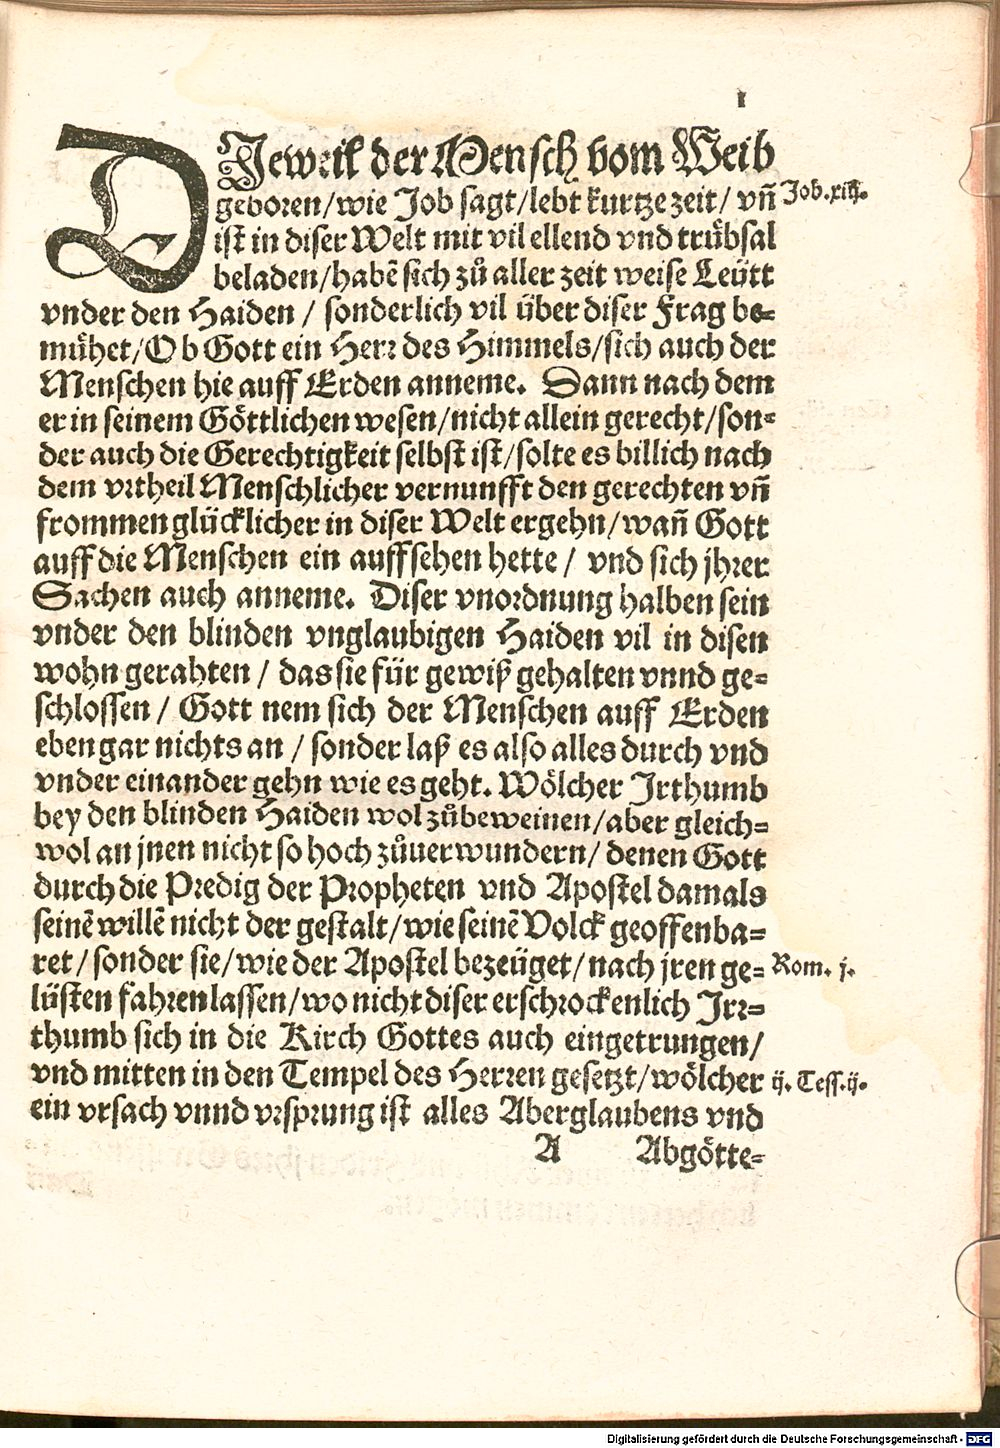 1
DJeweil der Mensch vom Weib
geboren/wie Job sagt/lebt kurtze zeit/ vñ
Job.xiiij.
ist in diser Welt mit vil ellend vnd trübsal
beladen/habẽ sich zů aller zeit weise Leütt
vnder den Haiden / sonderlich vil über diser Frag be=
mühet/Ob Gott ein Herr des Himmels/sich auch der
Menschen hie auff Erden anneme. Dann nach dem
er in seinem Göttlichen wesen/nicht allein gerecht/son=
der auch die Gerechtigkeit selbst ist/solte es billich nach
dem vrtheil Menschlicher vernunfft den gerechten vñ
frommen glücklicher in diser Welt ergehn/wañ Gott
auff die Menschen ein auffsehen hette / vnd sich jhrer
Sachen auch anneme. Diser vnordnung halben sein
vnder den blinden vnglaubigen Haiden vil in disen
wohn gerahten / das sie für gewiß gehalten vnnd ge=
schlossen / Gott nem sich der Menschen auff Erden
eben gar nichts an / sonder laß es also alles durch vnd
vnder einander gehn wie es geht. Wölcher Jrthumb
bey den blinden Haiden wol zůbeweinen/aber gleich=
wol an jnen nicht so hoch zůuerwundern/ denen Gott
durch die Predig der Propheten vnd Apostel damals
seinẽ willẽ nicht der gestalt/wie seinẽ Volck geoffenba=
ret/sonder sie/wie der Apostel bezeüget/nach jren ge=
Rom. j.
lüsten fahren lassen/wo nicht diser erschrockenlich Jrr=
thumb sich in die Kirch Gottes auch eingetrungen/
vnd mitten in den Tempel des Herren gesetzt/wölcher
ij. Tess.ij.
ein vrsach vnnd vrsprung ist alles Aberglaubens vnd
A Abgötte=
Digitalisierung gefördert durch die Deutsche Forschungsgemeinschaft - DFG